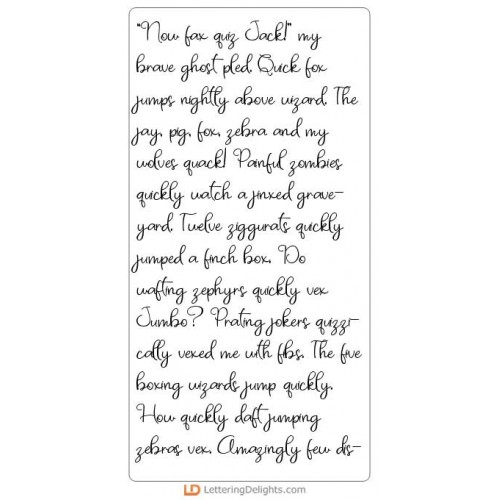 "Now fax quiz Jack!" my
brave ghost pled. Quick fox
jumps nightly above wizard. The
jay, pig, fox, zebra and my
wolves quack! Painful zombies
quickly watch a jinxed grave-
yard. Twelve ziggurats quickly
jumped a finch box. Do
wafting zephyrs quickly vex
Jumbo? Prating jokers quizzi-
cally vexed me with fibs. The five
boxing wizards jump quickly.
How quickly daft jumping
zebras vex. Amazingly few dis-
LD LetteringDelights.com